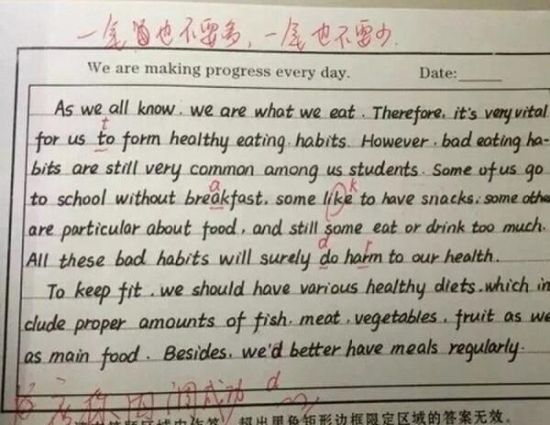 一笔也不要多,一笔也不要少.
We are making progress every day. Date:
As we all know, we are what we eat. Therefore, it's very vital
t
for us to form healthy eating habits. However, bad eating ha-
bits are still very common among us students. Some of us go
a k
to school without breakfast, some like to have snacks, some othe
are particular about food, and still some eat or drink too much.
d r
All these bad habits will surely do harm to our health.
To keep fit, we should have various healthy diets, which in
clude proper amounts of fish, meat, vegetables, fruit as we
as main food. Besides, we'd better have meals regularly.
成功 d
答题区域内作答,超出黑色矩形边框限定区域的答案无效。